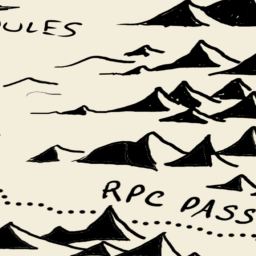 OULES
RPC PASS